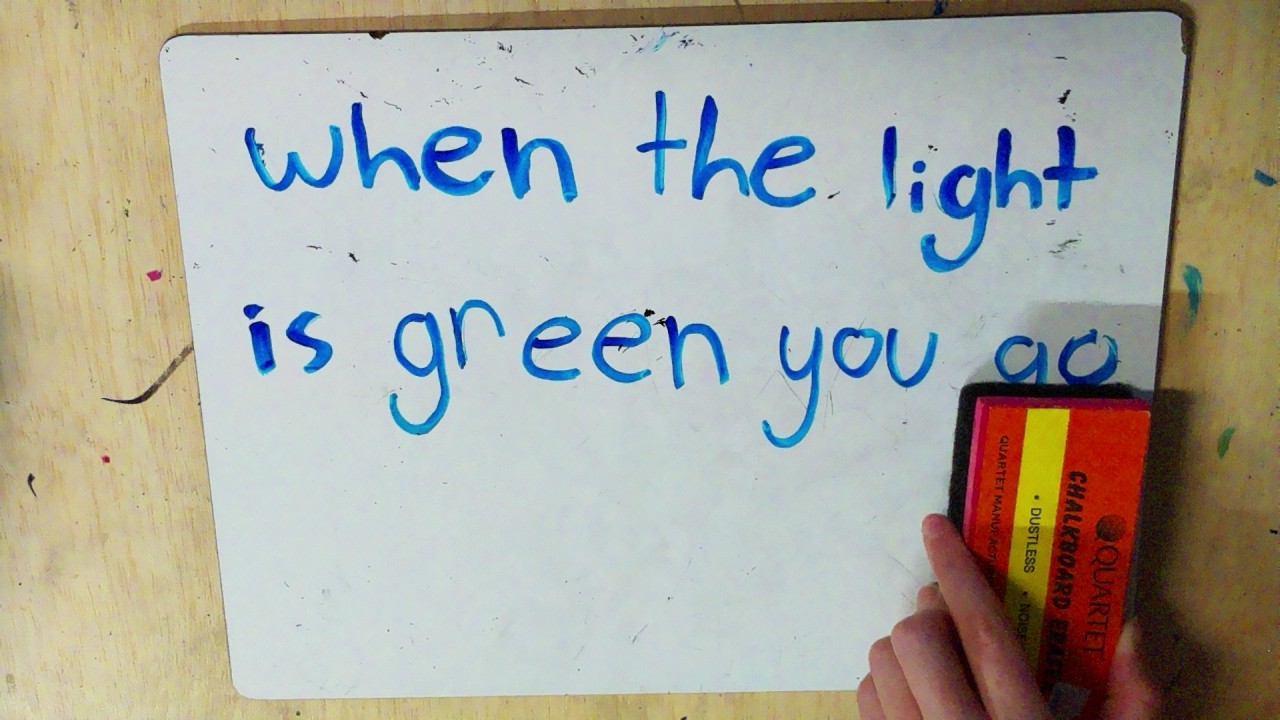 when the light
is green you go
QUARTET
CHALKBOARD
• DUSTLESS •
QUARTET